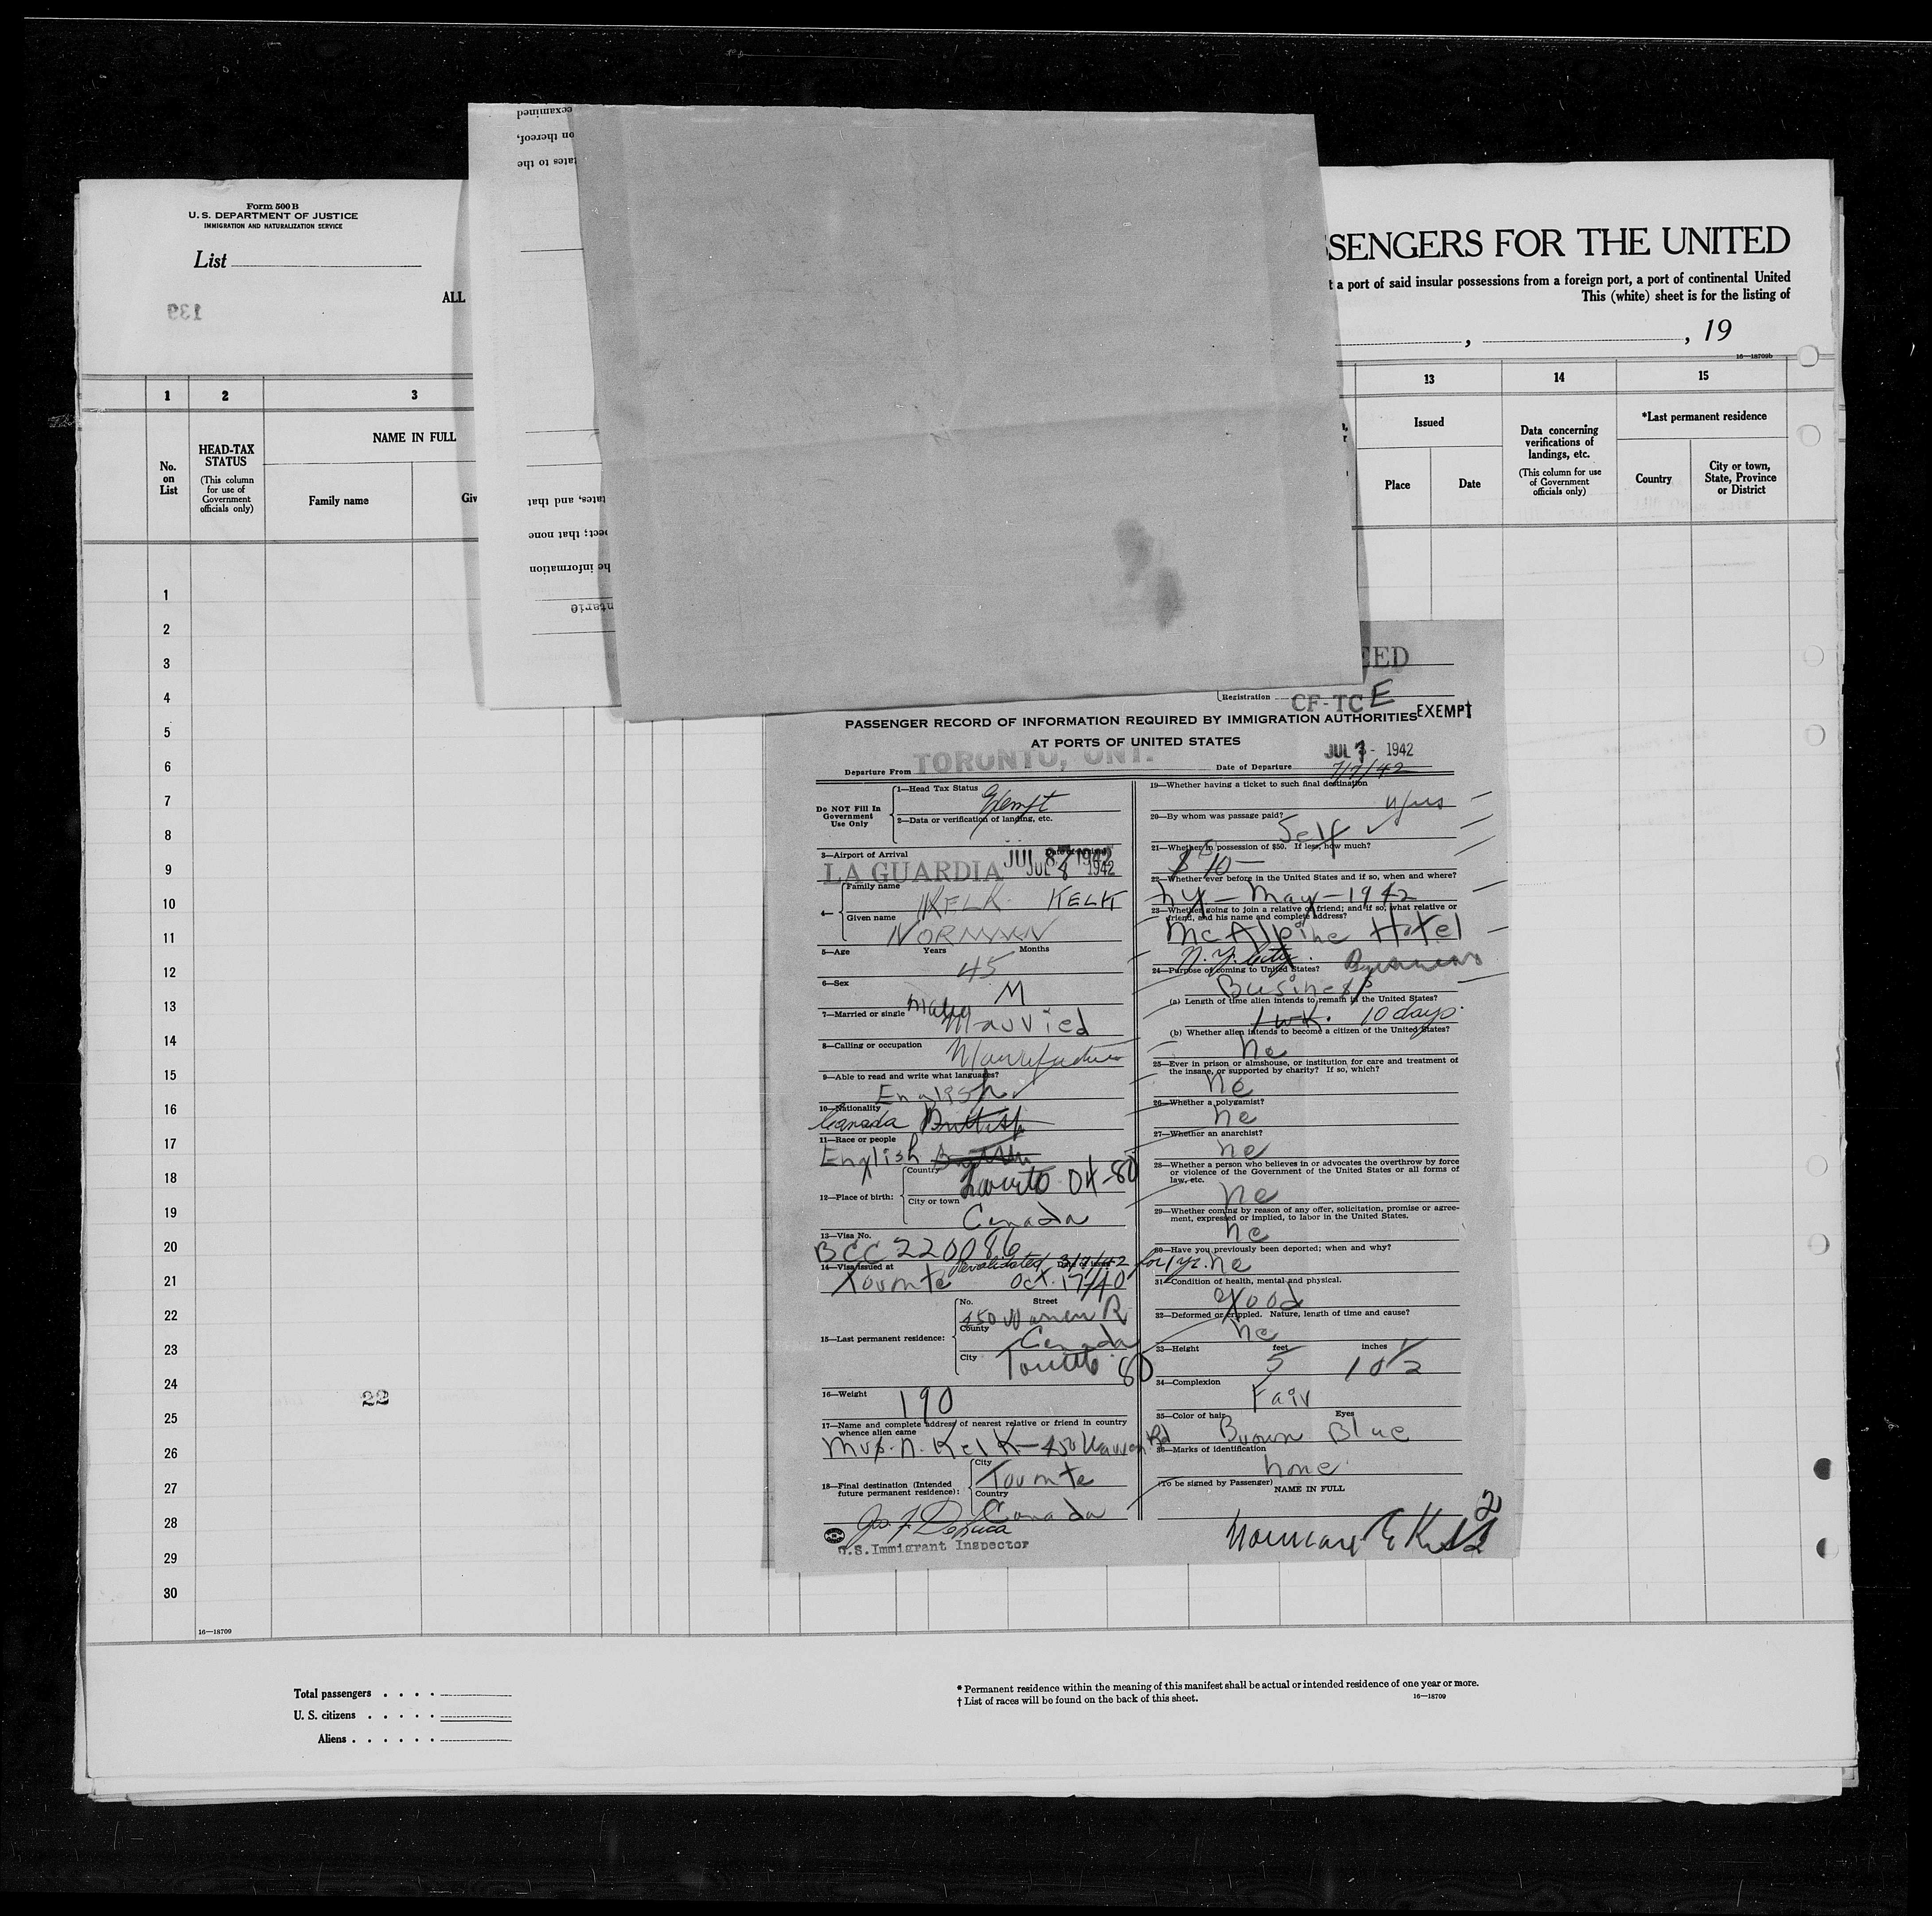 Form 500 B
U. S. DEPARTMENT OF JUSTICE
IMMIGRATION AND NATURALIZATION SERVICE
List
139
ALL
SSENGERS FOR THE UNITED
t a port of said insular possessions from a foreign port, a port of continental United
This (white) sheet is for the listing of
, , 19
16—18709b
1 2 3 13 14 15
No. on List
HEAD-TAX STATUS
(This column for use of Government officials only)
NAME IN FULL
Family name
Giv
Issued
Place
Date
Data concerning verifications of landings, etc.
(This column for use of Government officials only)
*Last permanent residence
Country
City or town, State, Province or District
cexamined
on thereof,
ates to the
tates, and that
pect; that none
he information
ntario
1
2
3
4
5
6
7
8
9
10
11
12
13
14
15
16
17
18
19
20
21
22
23
24
25
26
27
28
29
30
22
16—18709
EED
Registration CF-TCE
EXEMPT
PASSENGER RECORD OF INFORMATION REQUIRED BY IMMIGRATION AUTHORITIES
AT PORTS OF UNITED STATES
Departure From TORONTO, ONT.
Date of Departure JUL 7 - 1942
7/7/42
Do NOT Fill In Government Use Only
1—Head Tax Status Exempt
2—Data or verification of landing, etc.
3—Airport of Arrival LA GUARDIA
JUL 8 1942
JUL 8 1942
4—
Family name KELK KELK
Given name NORMAN
5—Age Years Months
45
6—Sex M
Male
7—Married or single Married
8—Calling or occupation Manufacturer
9—Able to read and write what languages?
English
10—Nationality
Canada British
11—Race or people
English
12—Place of birth:
Country Toronto Ont-80
City or town
Canada
13—Visa No.
BCC 220086
14—Visa issued at Revalidated, 3/9/42 for 1 yr.
Toronto Oct. 17/40
15—Last permanent residence:
No. Street
450 Warren R
County Canada
City Toronto 80
16—Weight 190
17—Name and complete address of nearest relative or friend in country
whence alien came
Mrs. N. Kelk—450 Warren Rd
18—Final destination (Intended
future permanent residence):
City Toronto
Country Canada
Jos. F. DeLuca
U.S. Immigrant Inspector
19—Whether having a ticket to such final destination
yes
20—By whom was passage paid?
Self
21—Whether in possession of $50. If less, how much?
22—Whether ever before in the United States and if so, when and where?
NY – May – 1942
23—Whether going to join a relative or friend; and if so, what relative or
friend, and his name and complete address?
McAlpine Hotel
N.Y. City.
24—Purpose of coming to United States? Business
Business
(a) Length of time alien intends to remain in the United States?
1 wk. 10 days
(b) Whether alien intends to become a citizen of the United States?
no
25—Ever in prison or almshouse, or institution for care and treatment of
the insane, or supported by charity? If so, which?
no
26—Whether a polygamist?
no
27—Whether an anarchist?
no
28—Whether a person who believes in or advocates the overthrow by force
or violence of the Government of the United States or all forms of
law, etc.
no
29—Whether coming by reason of any offer, solicitation, promise or agree-
ment, expressed or implied, to labor in the United States.
no
30—Have you previously been deported; when and why?
no
31—Condition of health, mental and physical.
Good
32—Deformed or crippled. Nature, length of time and cause?
no
33—Height feet inches
5 10 1/2
34—Complexion
Fair
35—Color of hair Eyes
Brown Blue
36—Marks of identification
none
(To be signed by Passenger)
NAME IN FULL
Norman E Kelk
2
Total passengers . . . .
U. S. citizens . . . . .
Aliens . . . . . .
* Permanent residence within the meaning of this manifest shall be actual or intended residence of one year or more.
† List of races will be found on the back of this sheet.
16—18709